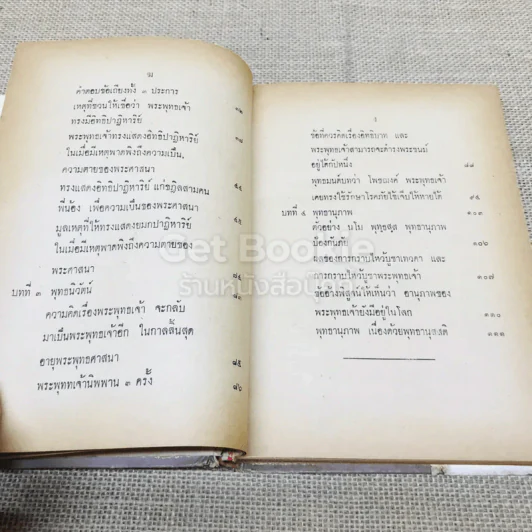 ฆ
คำตอบข้อเถียงทั้ง ๓ ประการ
เหตุที่ชวนให้เชื่อว่า พระพุทธเจ้า
ทรงมีอิทธิปาฏิหาริย์
พระพุทธเจ้าทรงแสดงอิทธิปาฏิหาริย์
ในเมื่อมีเหตุพาดพิงถึงความเป็น,
ความตายของพระศาสนา
ทรงแสดงอิทธิปาฏิหาริย์ แก่ชฎิลสามคน
พี่น้อง เพื่อความเป็นของพระศาสนา
มูลเหตุที่ให้ทรงแสดงยมกปาฏิหาริย์
ในเมื่อมีเหตุพาดพิงถึงความตายของ
พระศาสนา
บทที่ ๓ พุทธนิวัตน์
ความคิดเรื่องพระพุทธเจ้า จะกลับ
มาเป็นพระพุทธเจ้าอีก ในกาลสิ้นสุด
อายุพระพุทธศาสนา ๘๕
พระพุทธเจ้านิพพาน ๓ ครั้ง ๘๖
ข้อที่ควรคิดเรื่องอิทธิบาท และ
พระพุทธเจ้าสามารถจะดำรงพระชนม์
อยู่ได้กัปหนึ่ง
พุทธมนต์บทว่า โพชฌงค์ พระพุทธเจ้า
เคยทรงใช้รักษาโรคภัยไข้เจ็บให้หายได้ ๙๕
บทที่ ๔ พุทธานุภาพ ๑๐๓
ตัวอย่าง นโม พุทฺธสฺส พุทธานุภาพ
ป้องกันภัย ๑๐๖
ผลของการกราบไหว้บูชาเทวดา และ
การกราบไหว้บูชาพระพุทธเจ้า ๑๐๗
ขออ้างพิสูจน์ให้เห็นว่า อานุภาพของ
พระพุทธเจ้ายังมีอยู่ในโลก ๑๑๐
พุทธานุภาพ เนื่องด้วยพุทธานุสสติ ๑๑๓
Get Bookie
ร้านหนังสือ